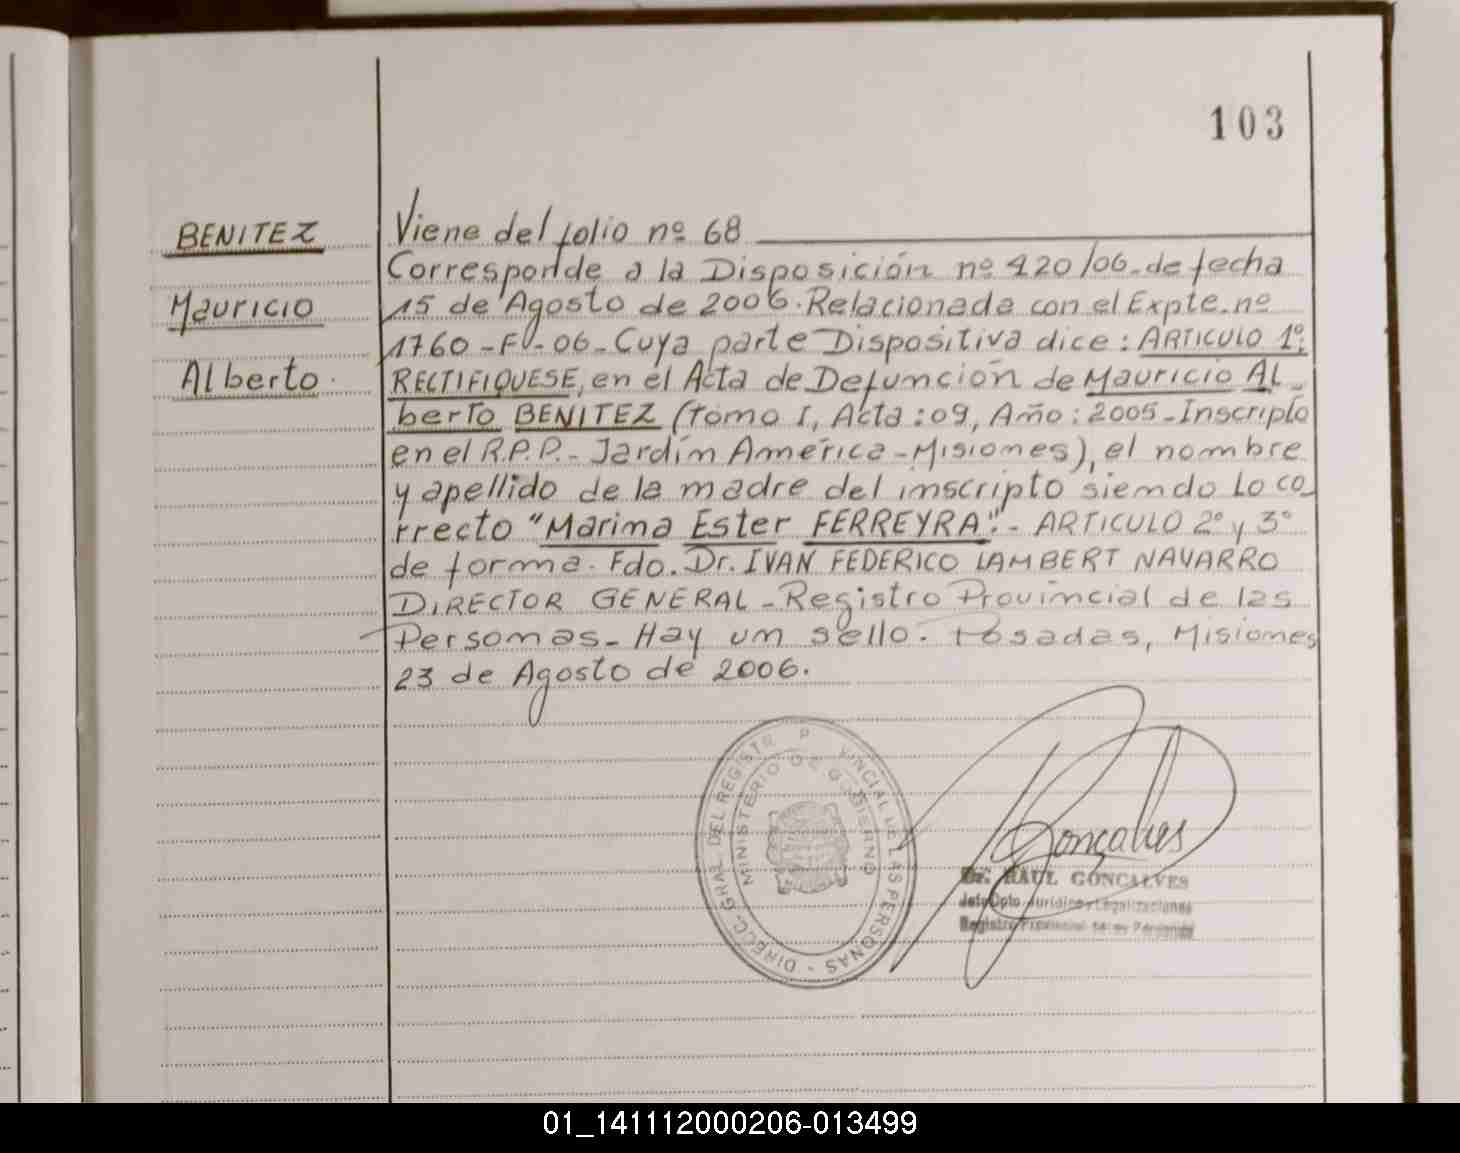 103
BENITEZ
Mauricio
Alberto.
Viene del folio nº 68
Corresponde a la Disposición nº 420/06-de fecha
15 de Agosto de 2006. Relacionada con el Expte. nº
1760-FV-06-Cuya parte Dispositiva dice: ARTICULO 1º:
RECTIFIQUESE, en el Acta de Defunción de Mauricio Al-
berto BENITEZ (Tomo I, Acta: 09, Año: 2005-Inscripto
en el R.P.P.- Jardín América-Misiones), el nombre
y apellido de la madre del inscripto siendo Lo co-
rrecto "Marina Ester FERREYRA".- ARTICULO 2º y 3º
de forma. Fdo. Dr. IVAN FEDERICO LAMBERT NAVARRO
DIRECTOR GENERAL-Registro Provincial de las
Personas-Hay un sello. Posadas, Misiones
23 de Agosto de 2006.
DIRECC. GRAL DEL REGISTR P VINCIAL DE LAS PERSONAS -
MINISTERIO DE GOBIERNO
Gonçalves
Dr. RAUL GONCALVES
Jefe Dpto Jurídico y Legalizaciones
Registro Provincial de las Personas
01_141112000206-013499